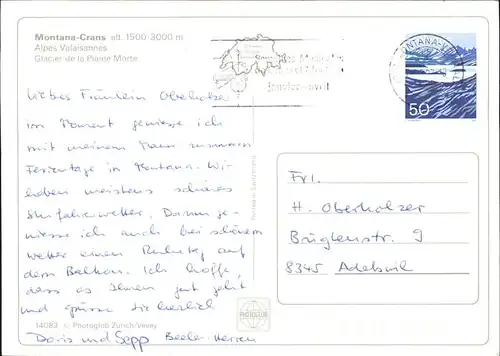 Montana-Crans alt. 1500-3000 m
Alpes Valaisannes
Glacier de la Plaine Morte
MONTANA-V
janvier-avril
50
Liebes Fräulein Oberholzer
im Moment geniesse ich
mit meinem Mann zusammen
Ferientage in Montana. Wir
haben meistens schönes
Skifahrwetter. Darum ge-
niesse ich auch bei schönem
Wetter einen Ruhetag auf
dem Balkon. Ich hoffe,
dass es Ihnen gut geht
und grüsse Sie herzlich
Doris und Sepp Beeler-Herren
14083 © Photoglob Zürich/Vevey
PHOTOGLOB
Frl.
H. Oberholzer
Brüglenstr. 9
8345 Adetswil